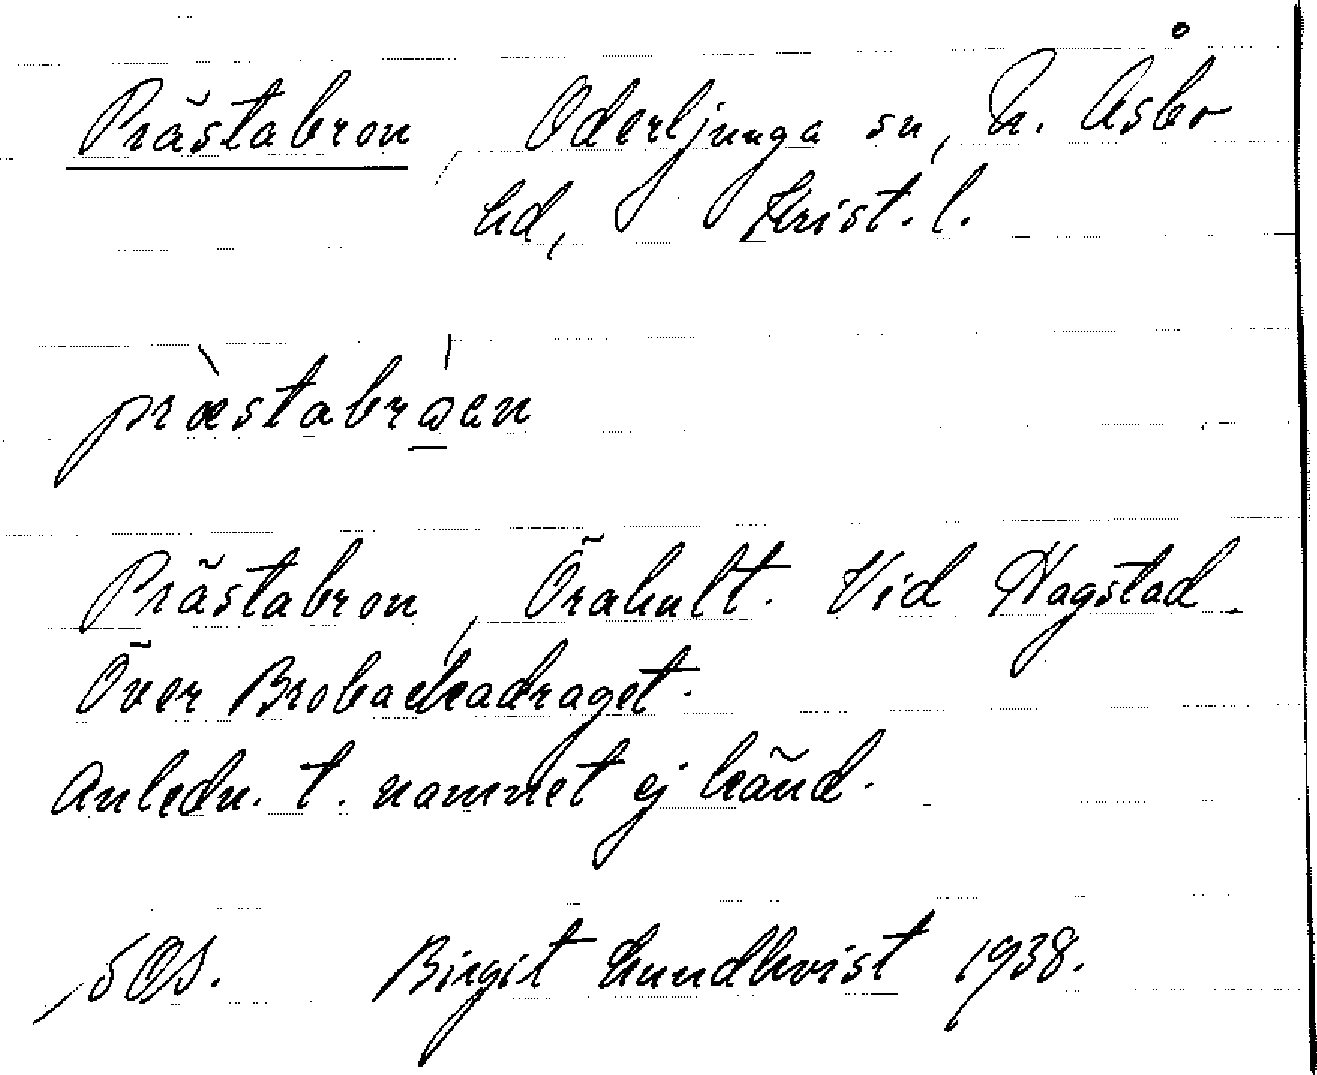 Prästabron, Oderljunga sn, N. Åsbo
hd, Krist. l.
præ̀stabrɷ́en
Prästabron, Örahult. Vid Hagstad.
Över Brobackadraget.
Anledn. t. namnet ej känd.
SOS. Birgit Lundkvist 1938.